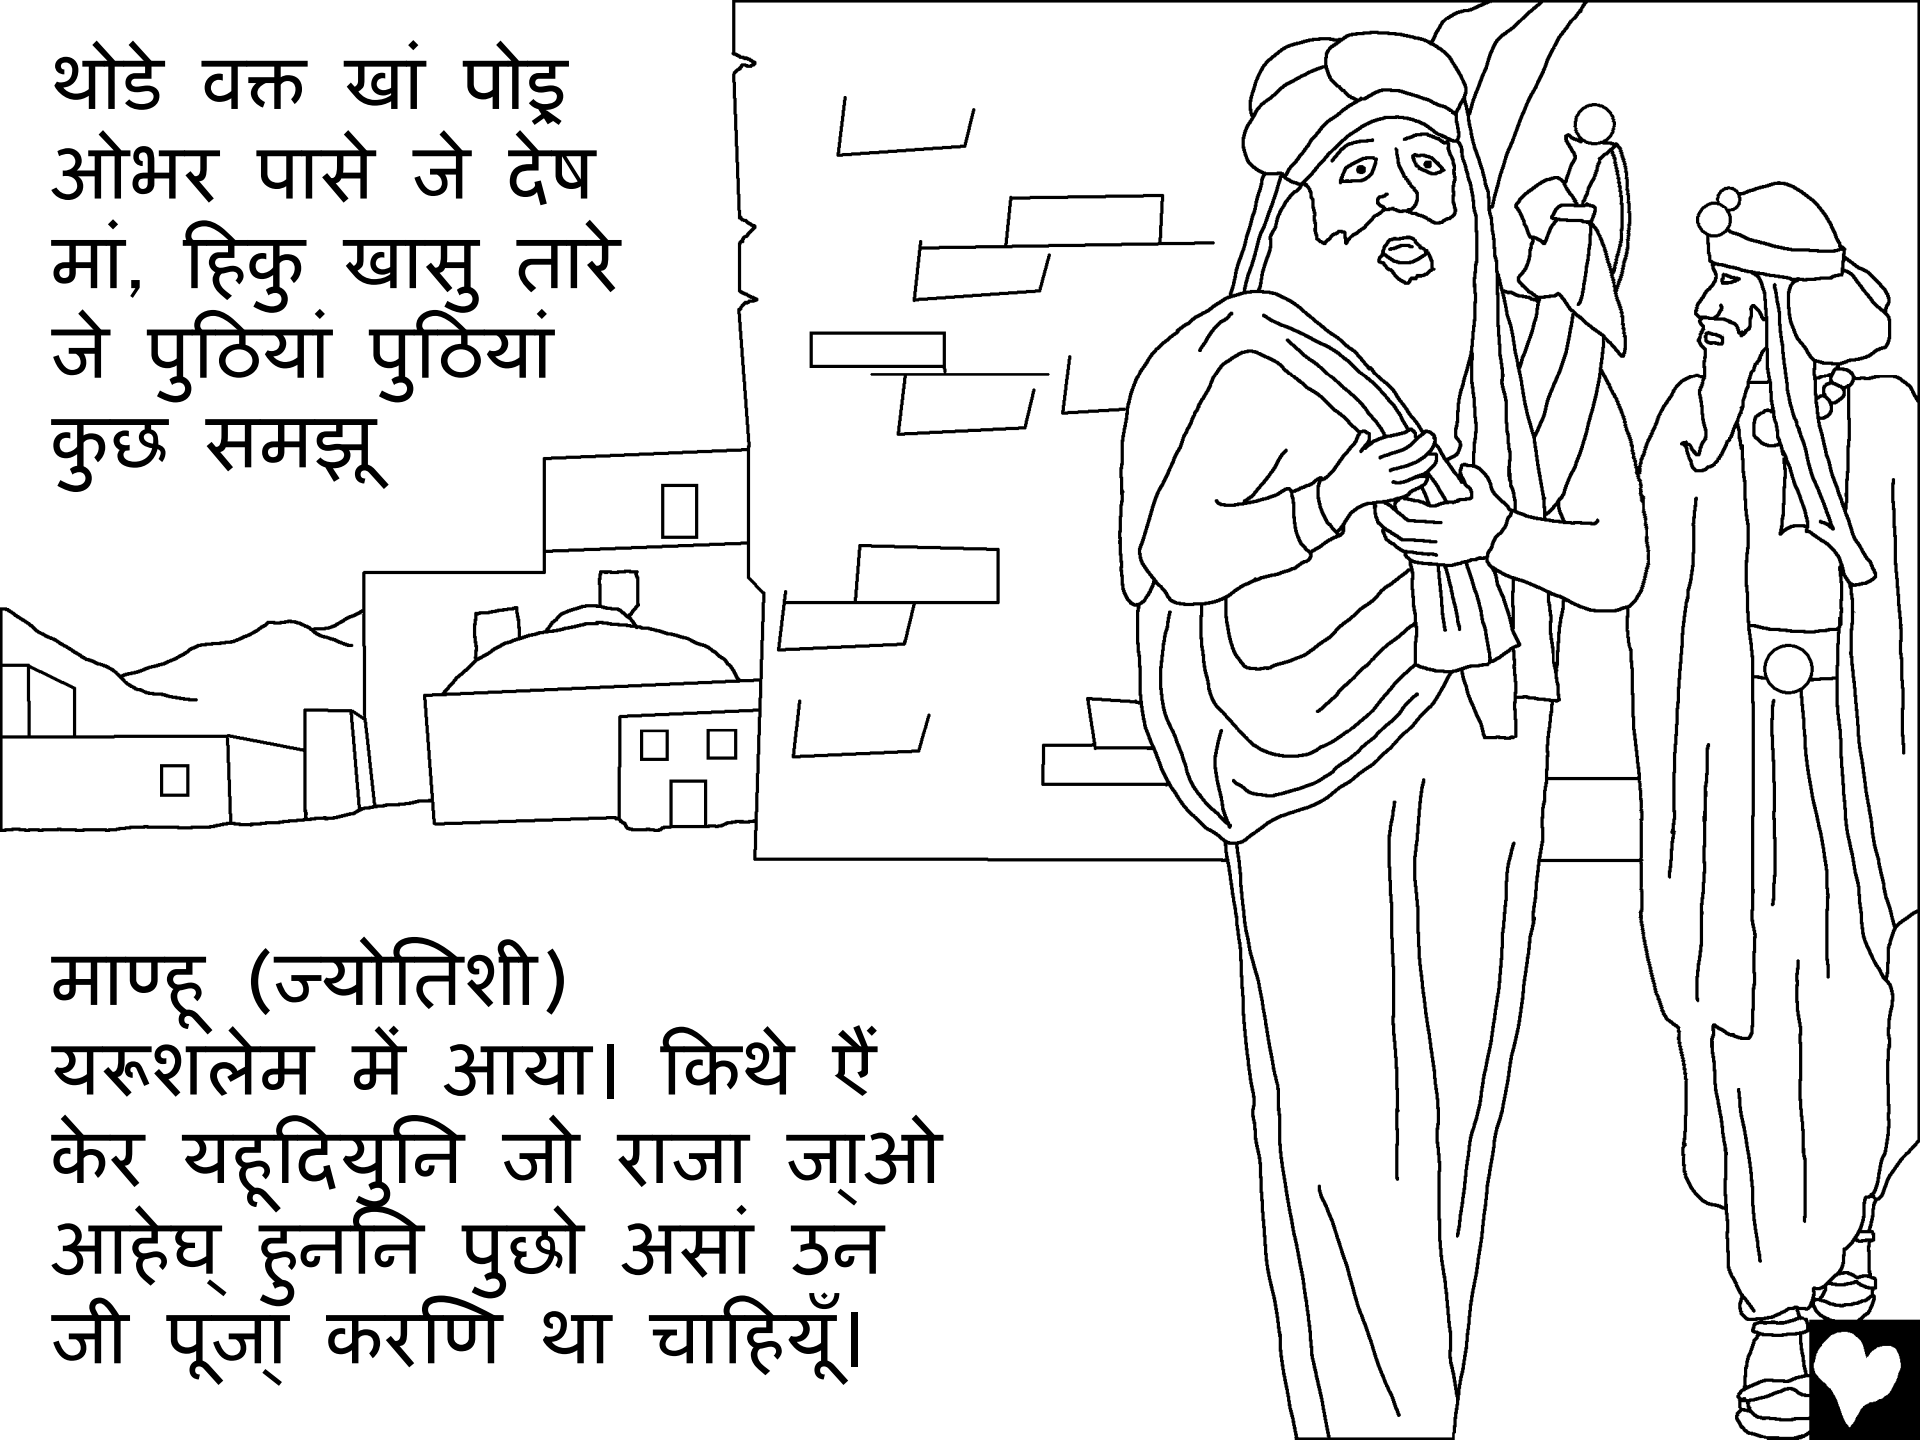 थोडे वक्त खां पोइ्र
ओभर पासे जे देष
मां, हिकु खासु तारे
जे पुठियां पुठियां
कुछ समझू
माण्हू (ज्योतिशी)
यरूशलेम में आया। किथे ऐं
केर यहूदियुनि जो राजा जा्ओ
आहेघ् हुननि पुछो असां उन
जी पूजा् करणि था चाहियूँ।